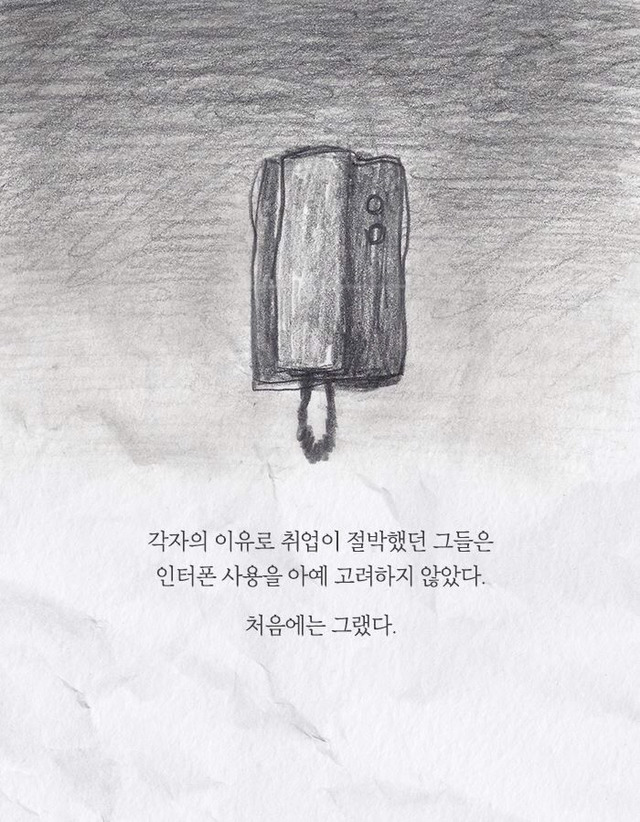 각자의 이유로 취업이 절박했던 그들은
인터폰 사용을 아예 고려하지 않았다.
처음에는 그랬다.